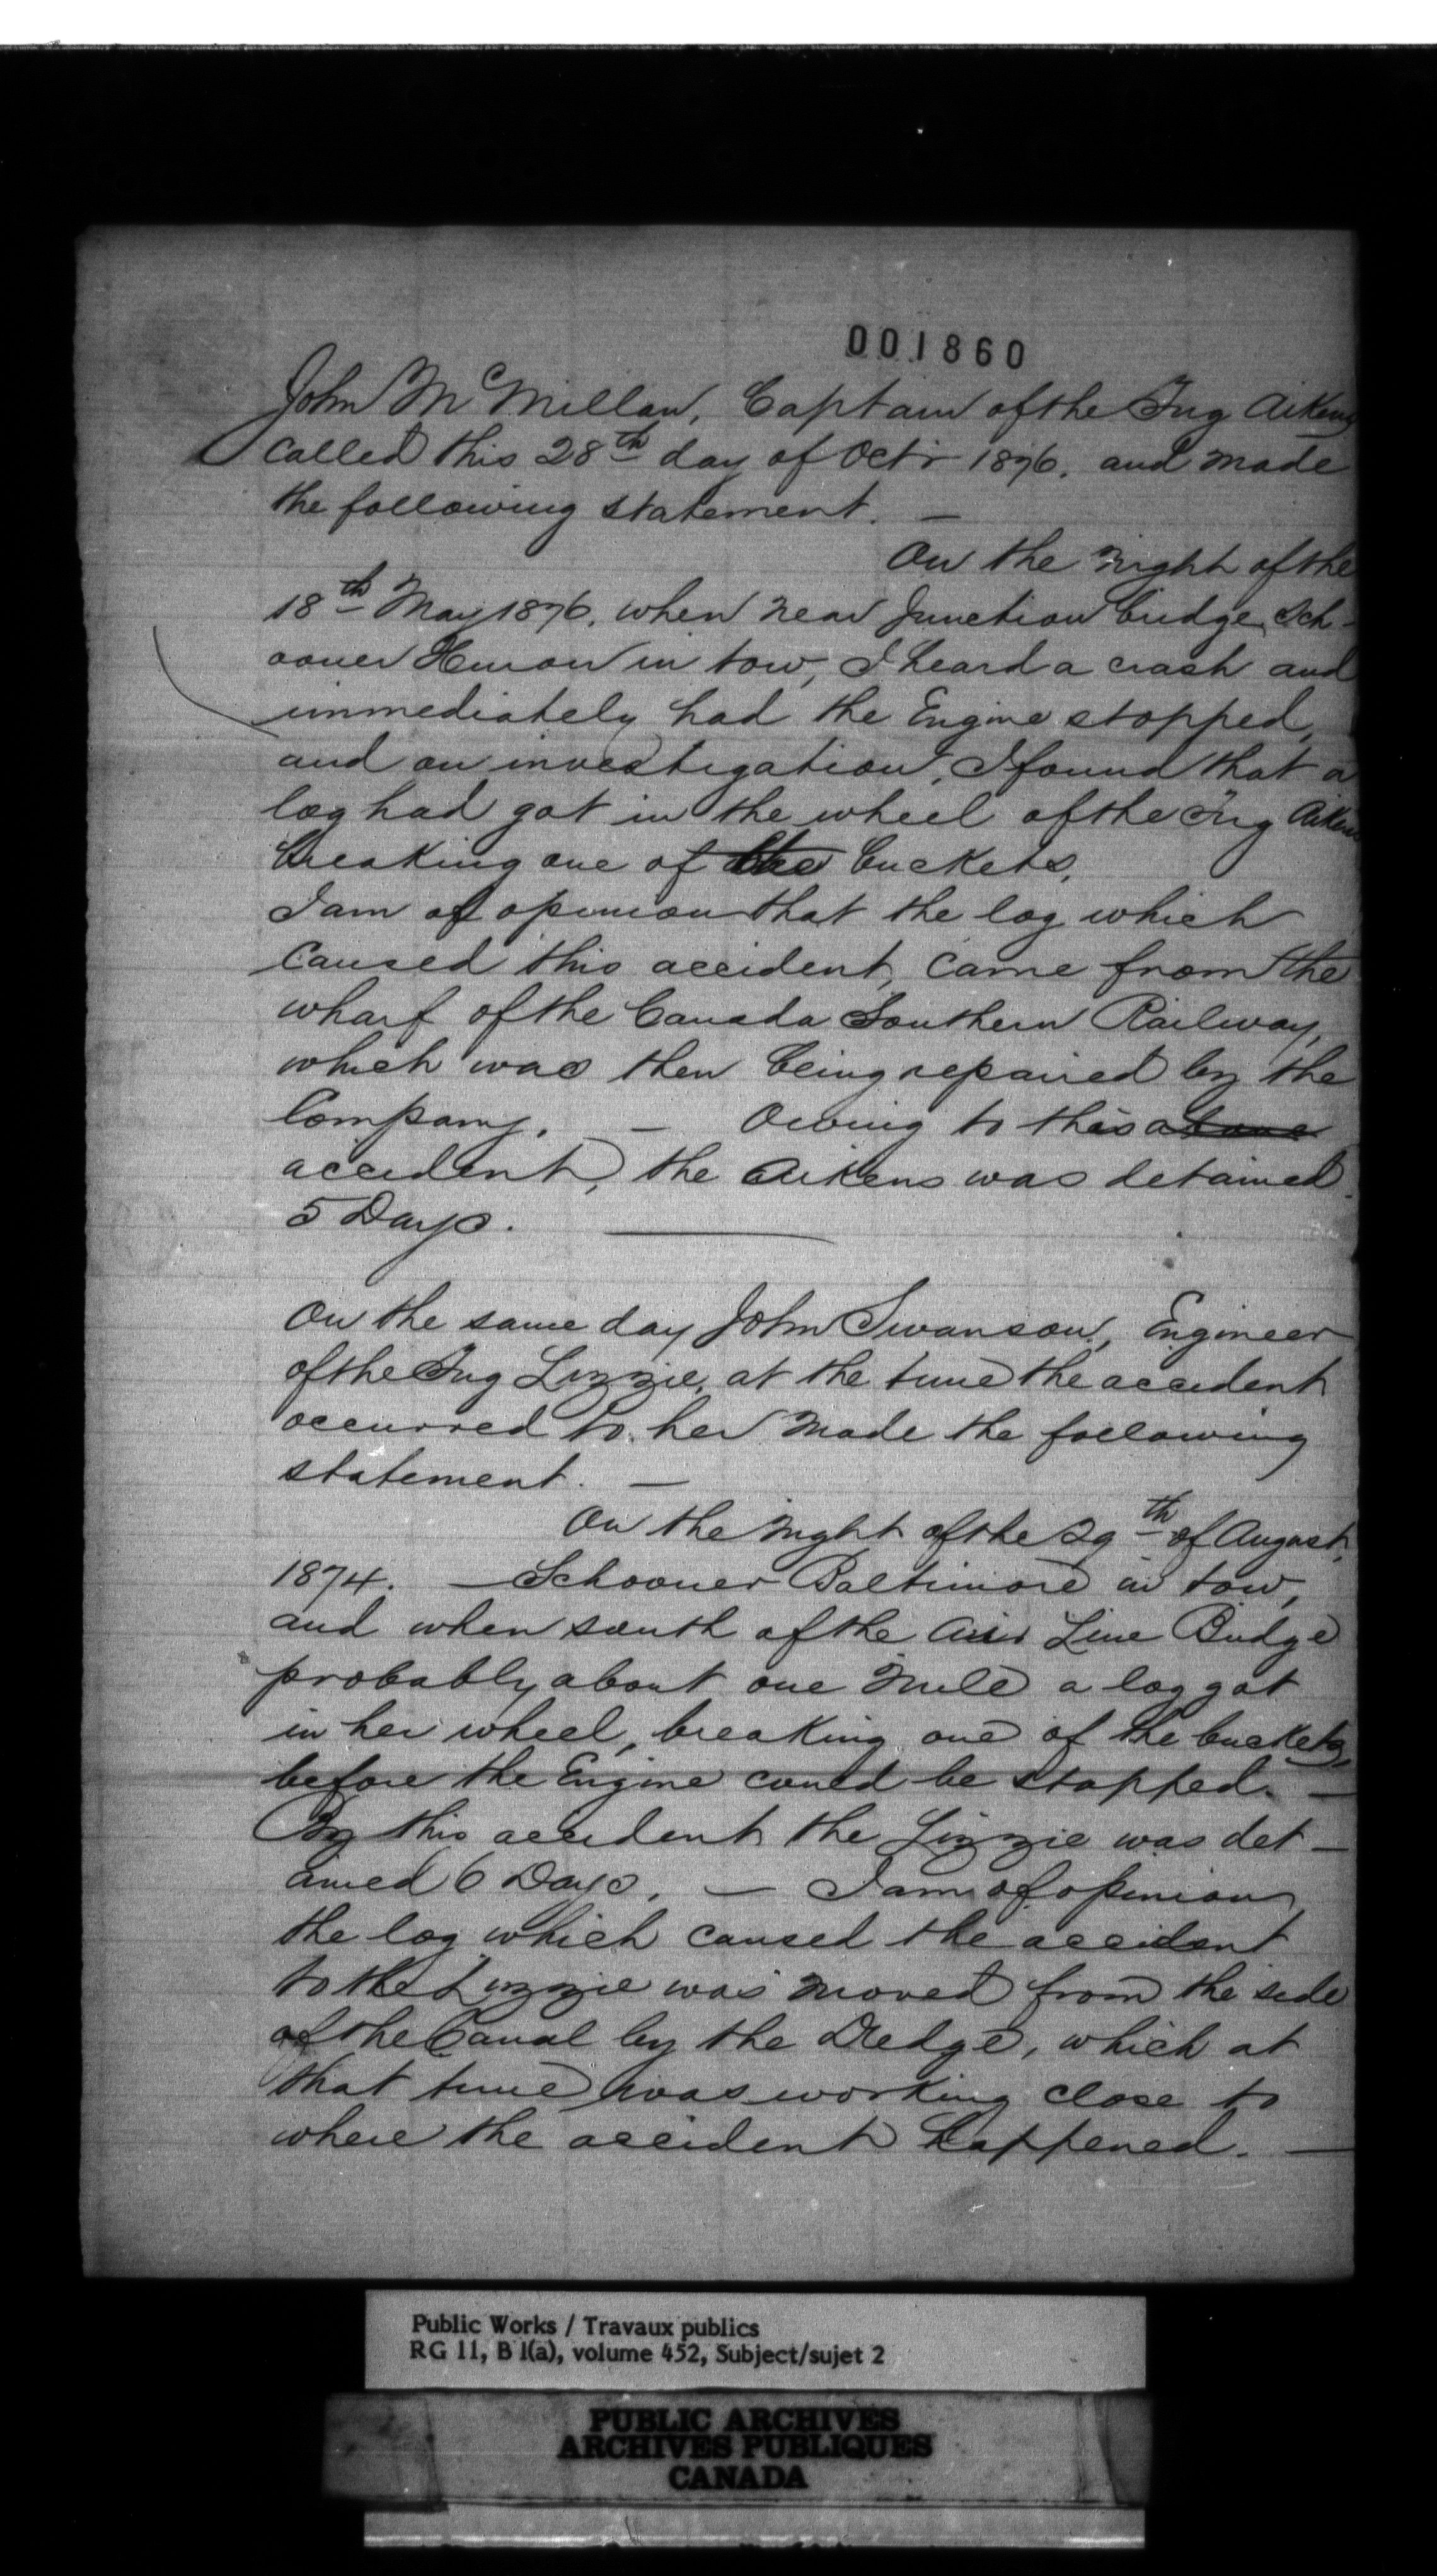 001860
John McMillan, Captain of the Tug Aikens
called this 28th day of Octr 1876. and made
the following statement. —
On the night of the
18th May 1876, when near Junction bridge, Sch-
ooner Huron in tow, I heard a crash and
immediately had the Engine stopped,
and on investigation, I found that a
log had got in the wheel of the Tug Aikens
breaking one of the buckets.
I am of opinion that the log which
caused this accident, came from the
wharf of the Canada Southern Railway,
which was then being repaired by the
Company. — Owing to this above
accident, the Aikens was detained
5 Days.
On the same day John Swanson, Engineer
of the Tug Lizzie, at the time the accident
occurred to her made the following
statement. —
On the night of the 29th of August,
1874. — Schooner Baltimore in tow,
and when south of the Air Line Bridge
probably about one mile a log got
in her wheel, breaking one of the buckets,
before the Engine could be stopped. —
By this accident the Lizzie was det-
ained 6 Days. — I am of opinion
the log which caused the accident
to the Lizzie was moved from the side
of the Canal by the Dredge, which at
that time was working close to
where the accident happened. —
Public Works / Travaux publics
RG 11, B 1(a), volume 452, Subject/sujet 2
PUBLIC ARCHIVES
ARCHIVES PUBLIQUES
CANADA